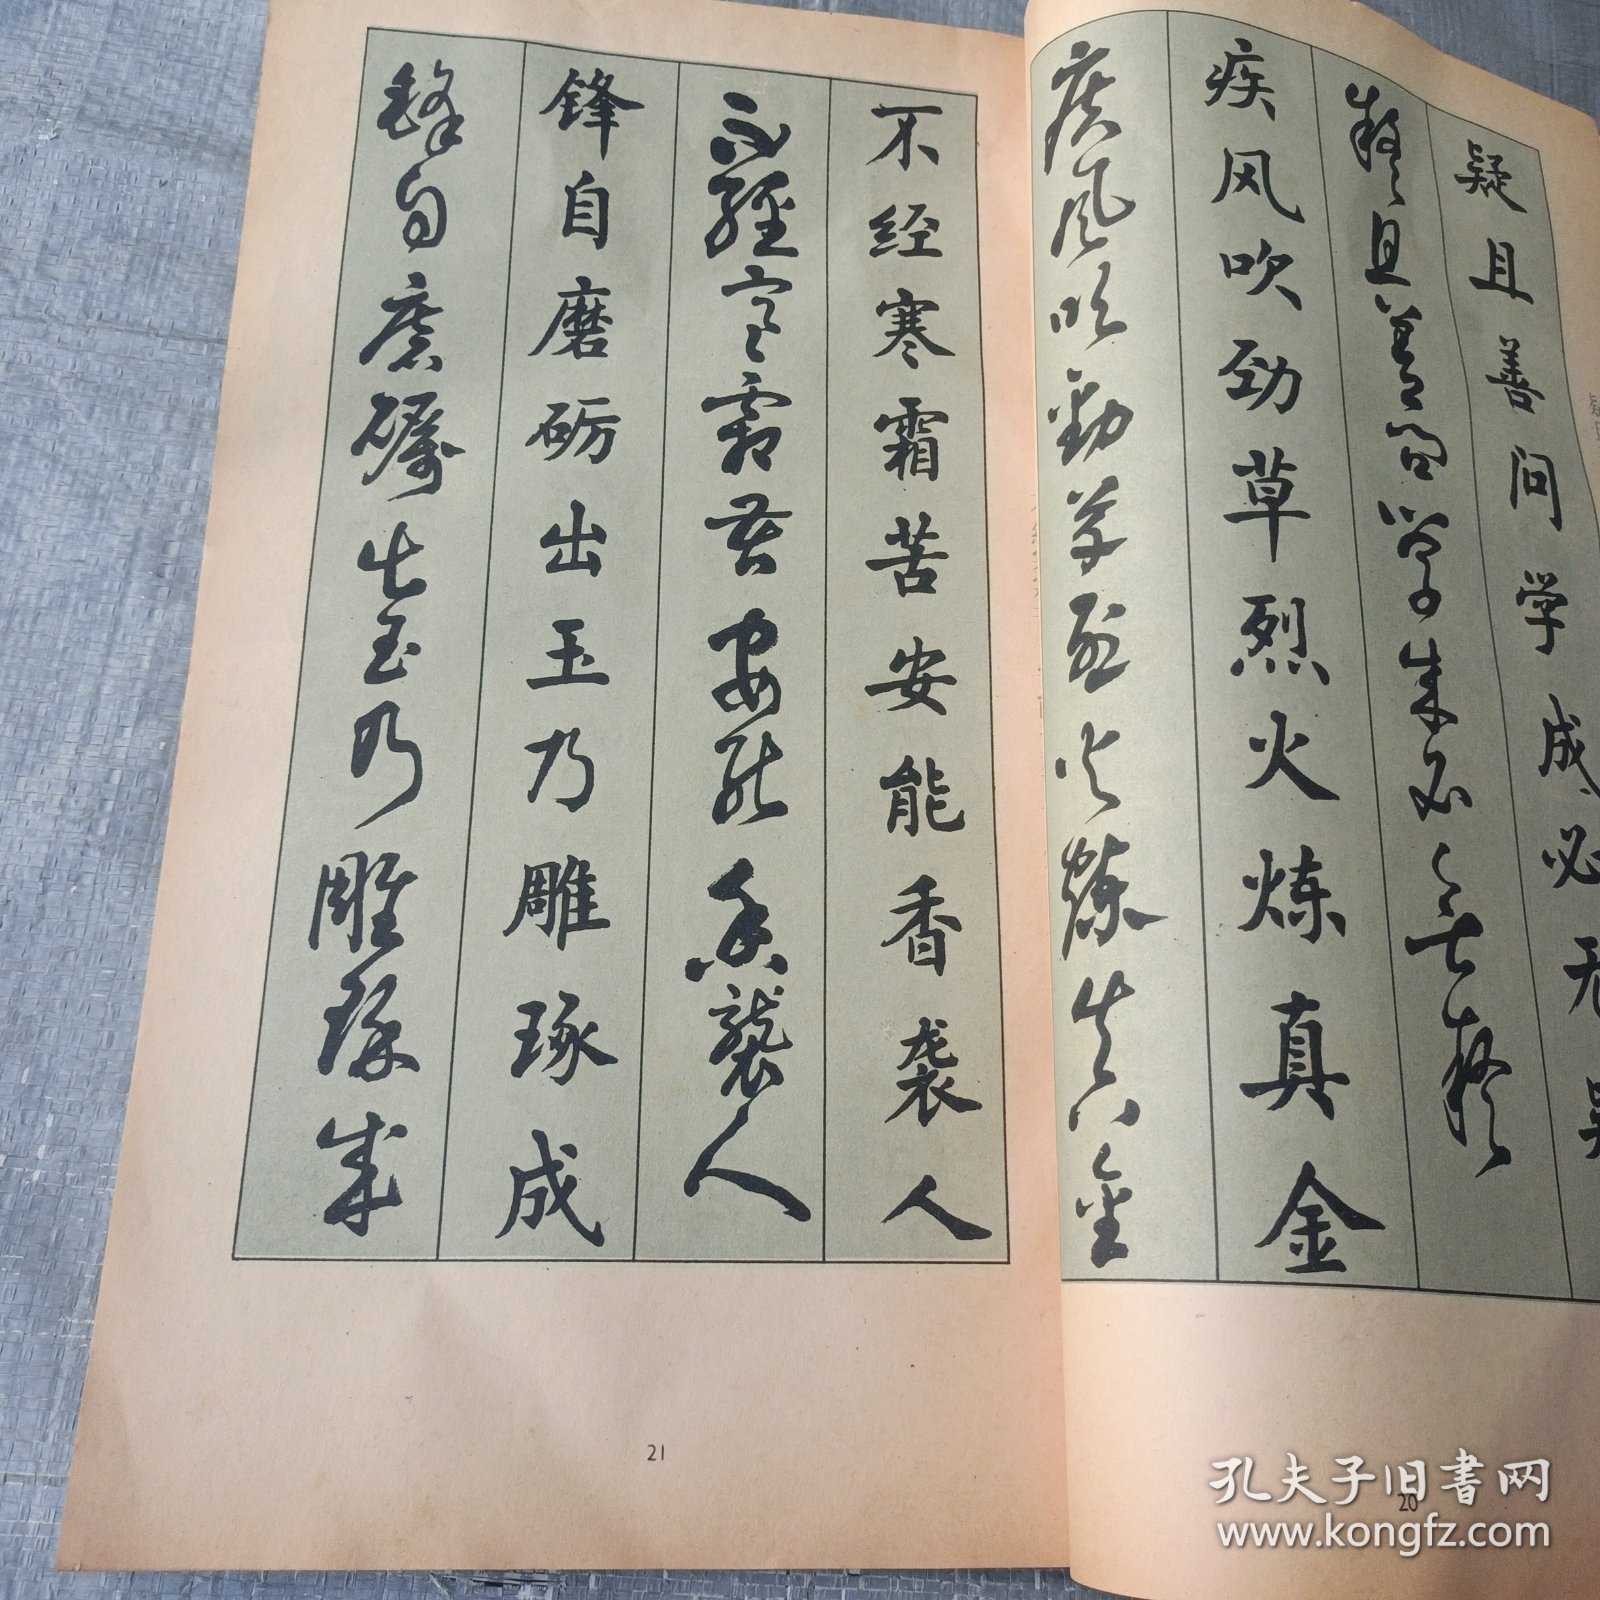 疑且善问学成必无
疑且善问学成必无疑
疾风吹劲草烈火炼真金
疾風吹勁草烈火煉真金
20
不经寒霜苦安能香袭人
不經寒霜苦安能香襲人
锋自磨砺出玉乃雕琢成
鋒自磨礪出玉乃雕琢成
21
孔夫子旧书网
www.kongfz.com